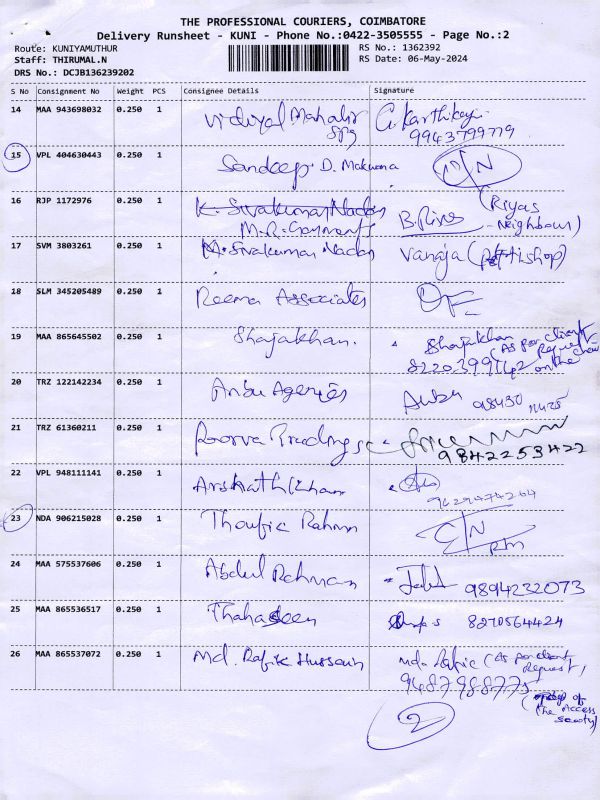 THE PROFESSIONAL COURIERS, COIMBATORE
Delivery Runsheet - KUNI - Phone No.:0422-3505555 - Page No.:2
Route: KUNIYAMUTHUR
RS No.: 1362392
Staff: THIRUMAL.N
RS Date: 06-May-2024
DRS No.: DCJB136239202
S No Consignment No Weight PCS Consignee Details Signature
14 MAA 943698032 0.250 1 Vidiyal Mahalir G. Karthikeyi
9943799779
15 VPL 404630443 0.250 1 Sandeep D. Makwana D/N
16 RJP 1172976 0.250 1 K. Sivakumar Nadar B. Riyas (Riyas
M.R. Garments Neighbour)
17 SVM 3803261 0.250 1 K. Sivakumar Nadar Vanaja (Petti shop)
18 SLM 345205489 0.250 1 Reema Associates
19 MAA 865645502 0.250 1 Shajakhan. Shajakhan (As per client
Request
8220399142 on the
20 TRZ 122142234 0.250 1 Anbu Agencies Anbu 98430
21 TRZ 61360211 0.250 1 Poorva Trading
9842253422
22 VPL 948111141 0.250 1 Arshath Khan
9629474264
23 NDA 906215028 0.250 1 Thoufic Rahman C/N
24 MAA 575537606 0.250 1 Abdul Rahman 9894232073
25 MAA 865536517 0.250 1 Thahaseen 8270564424
26 MAA 865537072 0.250 1 Md. Rafik Hussain Md. Rafic (As per client
Request,
9487988775
the Access
2